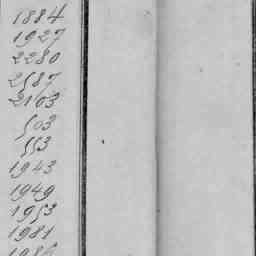 1884
1927
2280
2587
2163
503
553
1943
1949
1953
1981
1986